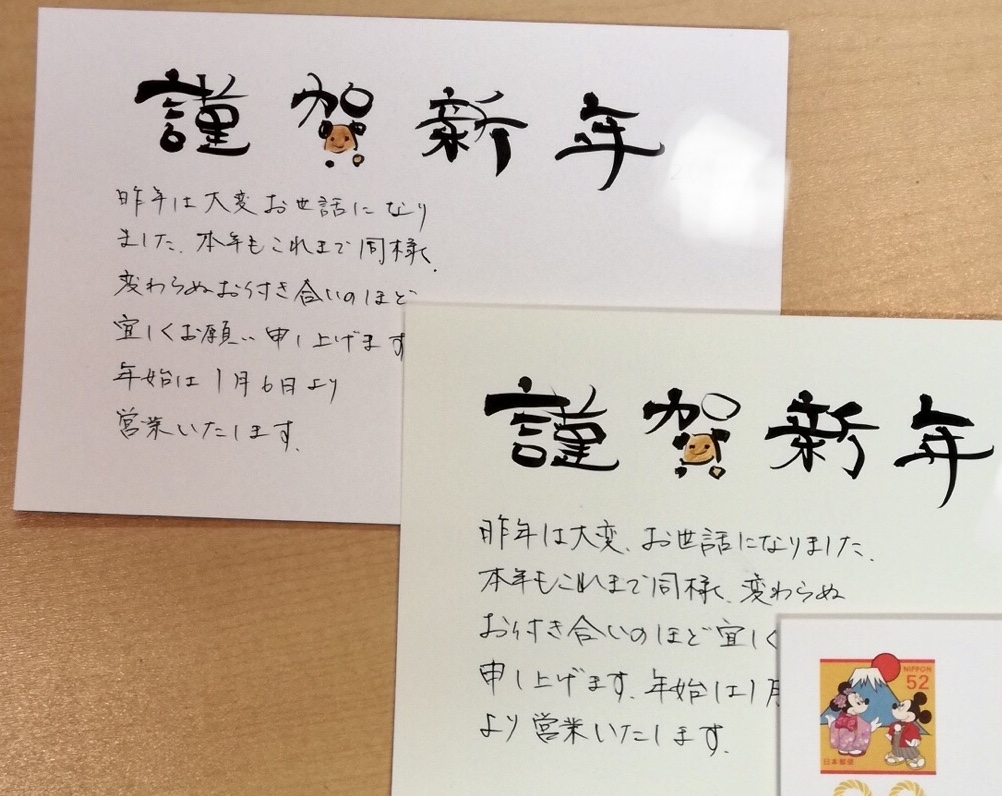 謹賀新年
昨年は大変お世話になり
ました、本年もこれまで同様、
変わらぬお付き合いのほど
宜しくお願い申し上げます
年始は1月6日より
営業いたします。
謹賀新年
昨年は大変、お世話になりました、
本年もこれまで同様、変わらぬ
お付き合いのほど宜しく
申し上げます、年始は1月
より営業いたします。
NIPPON
52
日本郵便